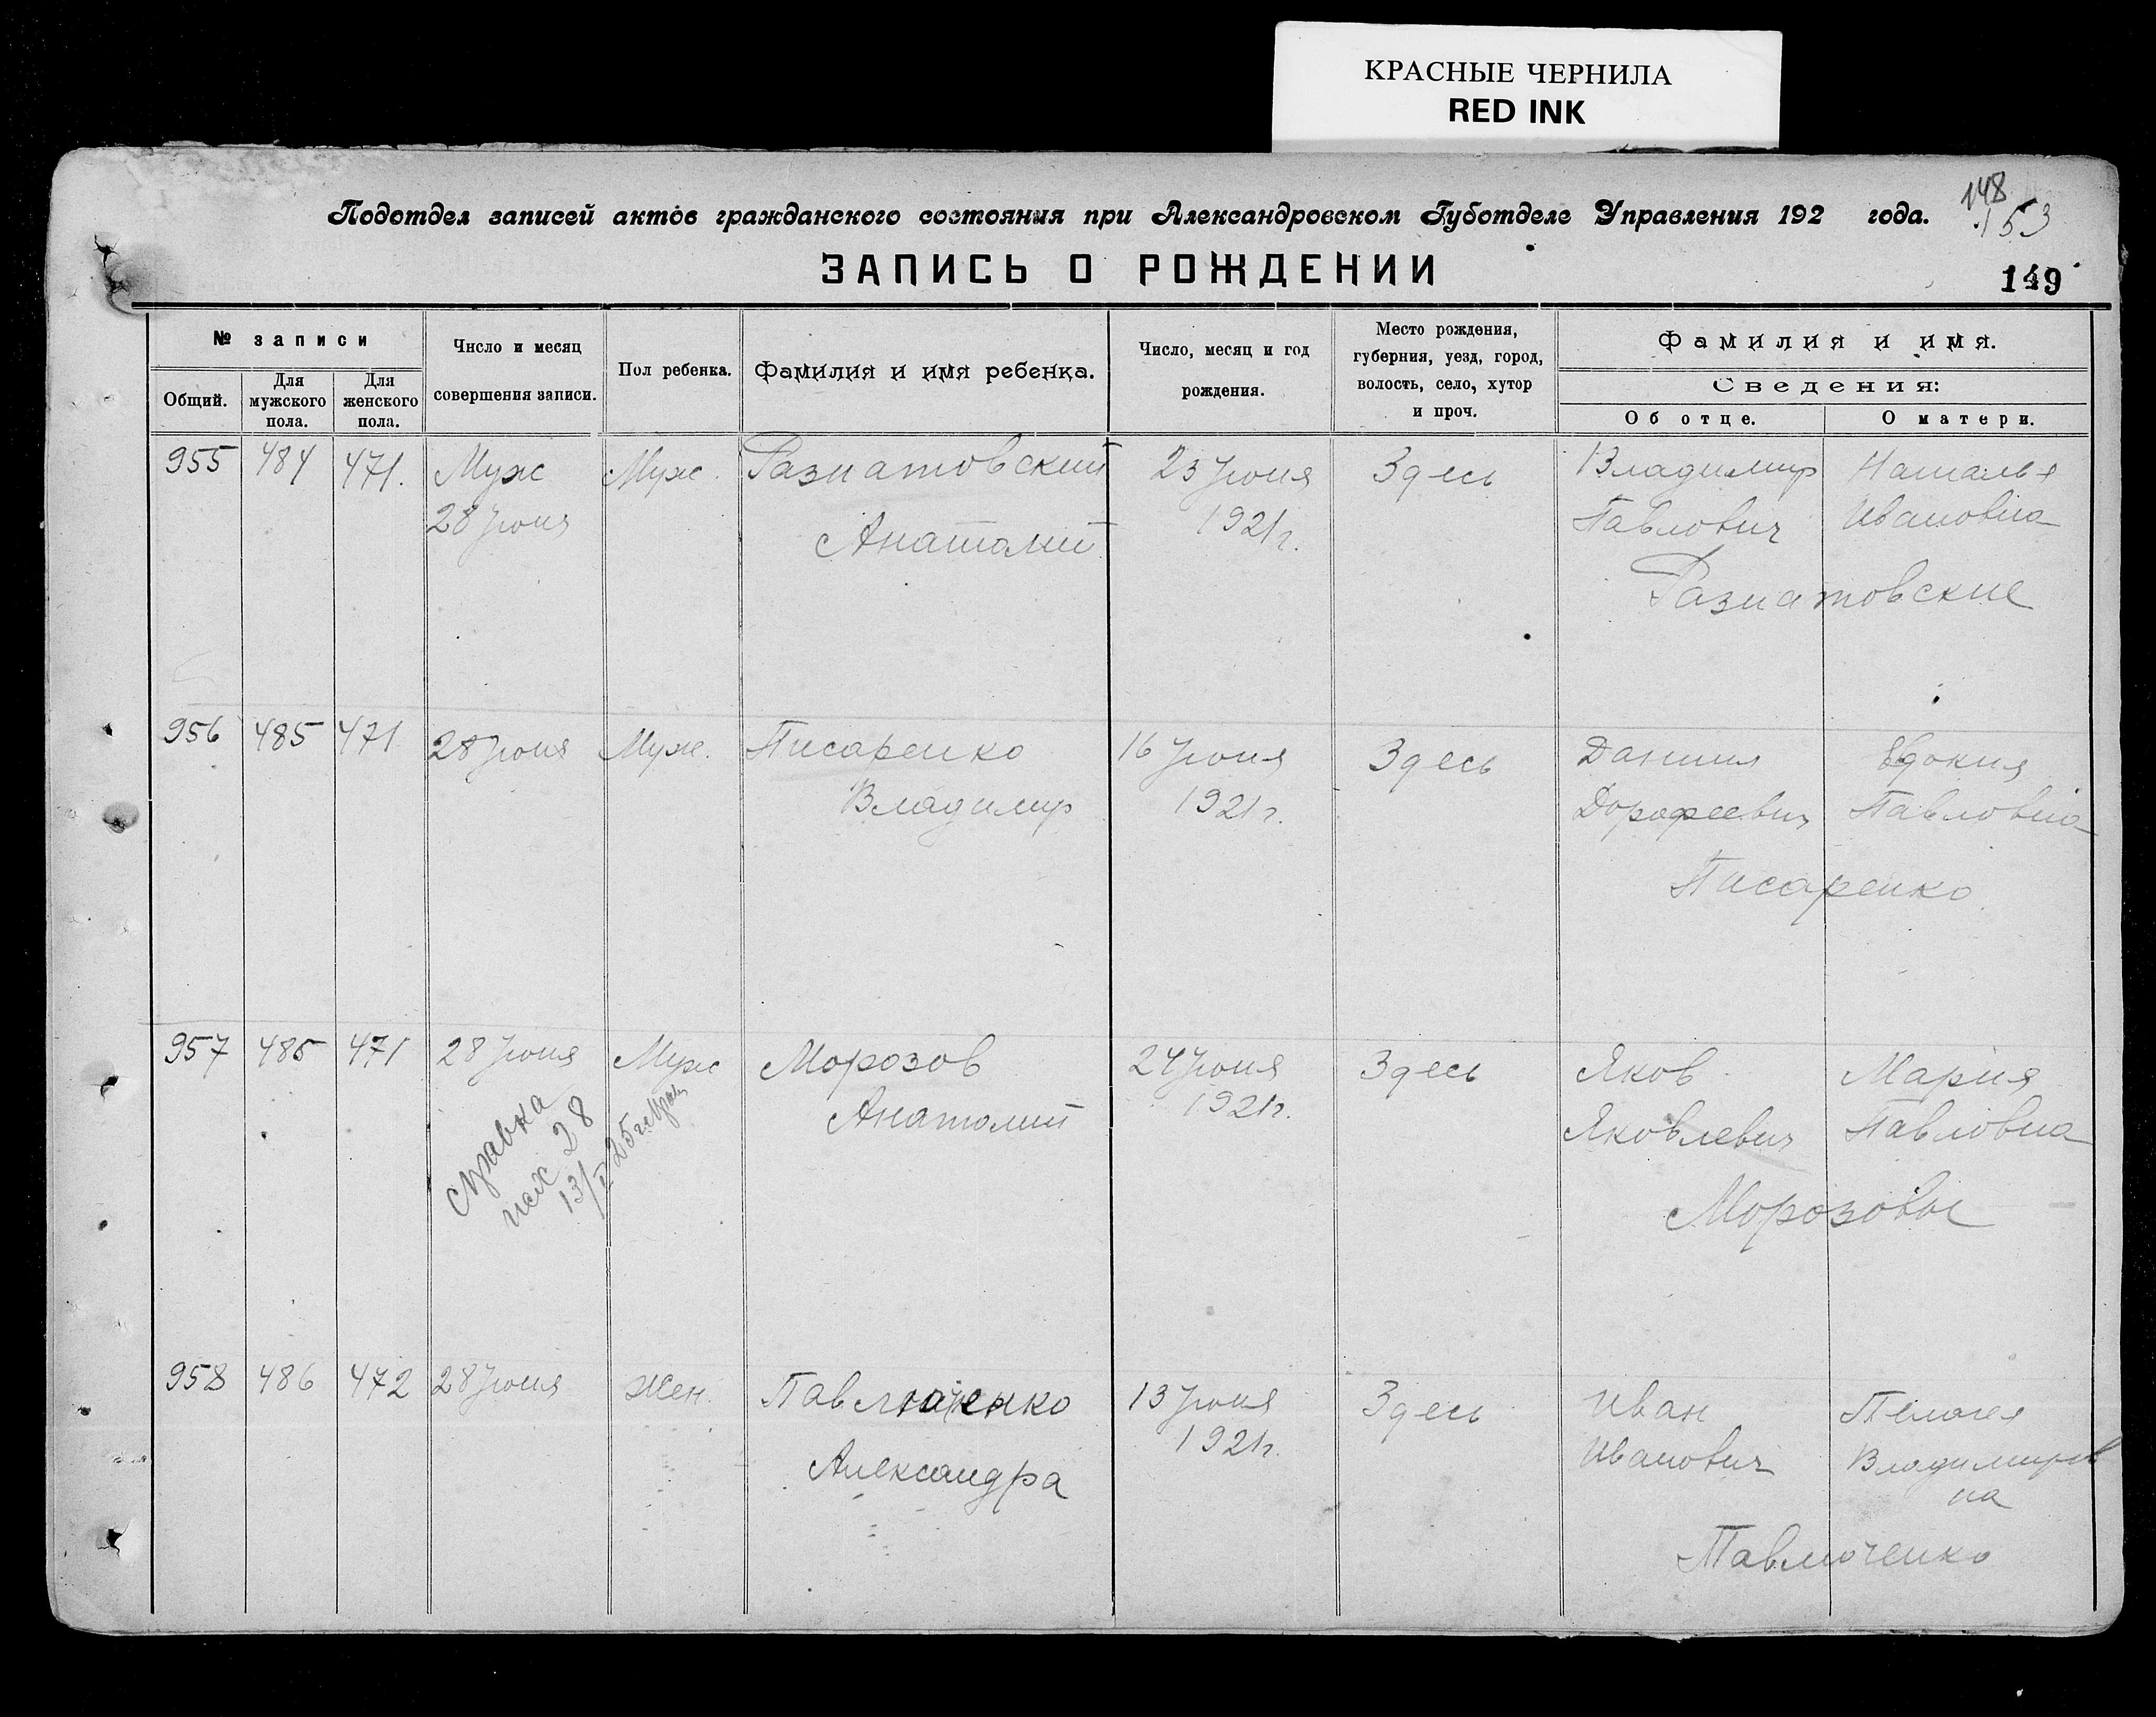 КРАСНЫЕ ЧЕРНИЛА
RED INK
148
153
Подотдел записей актов гражданского состояния при Александровском Губотделе Управления 192 года.
ЗАПИСЬ О РОЖДЕНИИ
149
№ записи
Общий.
Для мужского пола.
Для женского пола.
Число и месяц совершения записи.
Пол ребенка.
Фамилия и имя ребенка.
Число, месяц и год рождения.
Место рождения, губерния, уезд, город, волость, село, хутор и проч.
Фамилия и имя.
Сведения:
Об отце.
О матери.
955 484 471. Муж Муж. Разнатовский 23 Июня Здесь Владимир Наталья
28 Июня Анатолий 1921 г. Павлович Ивановна
Разнатовские
956 485 471 28 Июня Муж. Писаренко 16 Июня Здесь Даниил Евдокия
Владимир 1921 г. Дорофеевич Павловна
Писаренко
957 485 471 28 Июня Муж Морозов 24 Июня Здесь Яков Мария
Анатолий 1921 г. Яковлевич Павловна
Морозовы
справка
исх 28
13/I 25 г
958 486 472 28 Июня Жен. Павлюченко 13 Июня Здесь Иван Пелагея
Александра 1921 г. Иванович Владимиров
на
Павлюченко